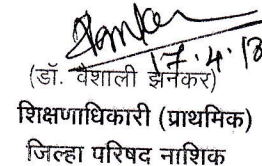 17.4.18
(डॉ. वैशाली झनकर)
शिक्षणाधिकारी (प्राथमिक)
जिल्हा परिषद नाशिक